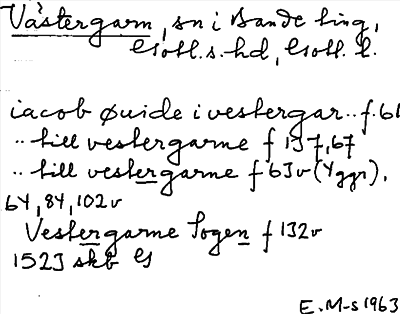 Västergarn, sn i Bande ting,
Gotl. s. hd, Gotl. l.
iacob Quide i vestergar.. f. 61
.. till vestergarne f 137, 67
.. till vestergarne f 63v (4 ggr),
64, 84, 102v
Vestergarne Sogen f 132v
1523 skb G
E. M-s 1963